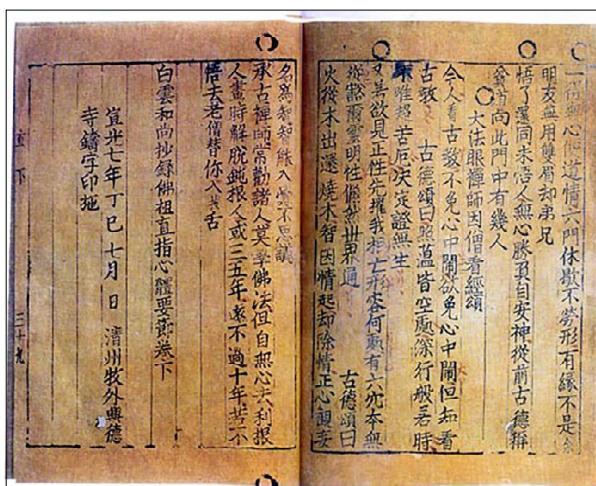 一得無心便道情六門休歇不勞形有緣不是余
朋友無用雙眉却弟兄
悟了還同未悟人無心勝負自安神從前古德稱
貧道向此門中有幾人
○大法眼禪師因僧看經頌
今人看古教不免心中鬧欲免心中鬧但知看
古教 古德頌曰照蘊皆空處深行般若時
唯超苦厄決定證無生
欲見正性先摧我相亡形容何處有六本無
從豁爾靈明性翛然世界通 古德頌曰
火從木出還燒木智因情起却除情正心觀妄
名爲智智能入處不思議
承古禪師常勸諸人莫學佛法但自無心去利根
人晝時解脫鈍根人或三五年遠不過十年若不
悟去老僧替你入舌
白雲和尚抄錄佛祖直指心體要節卷下
宣光七年丁巳七月 日 清州牧外興德
寺鑄字印施
下 三十九